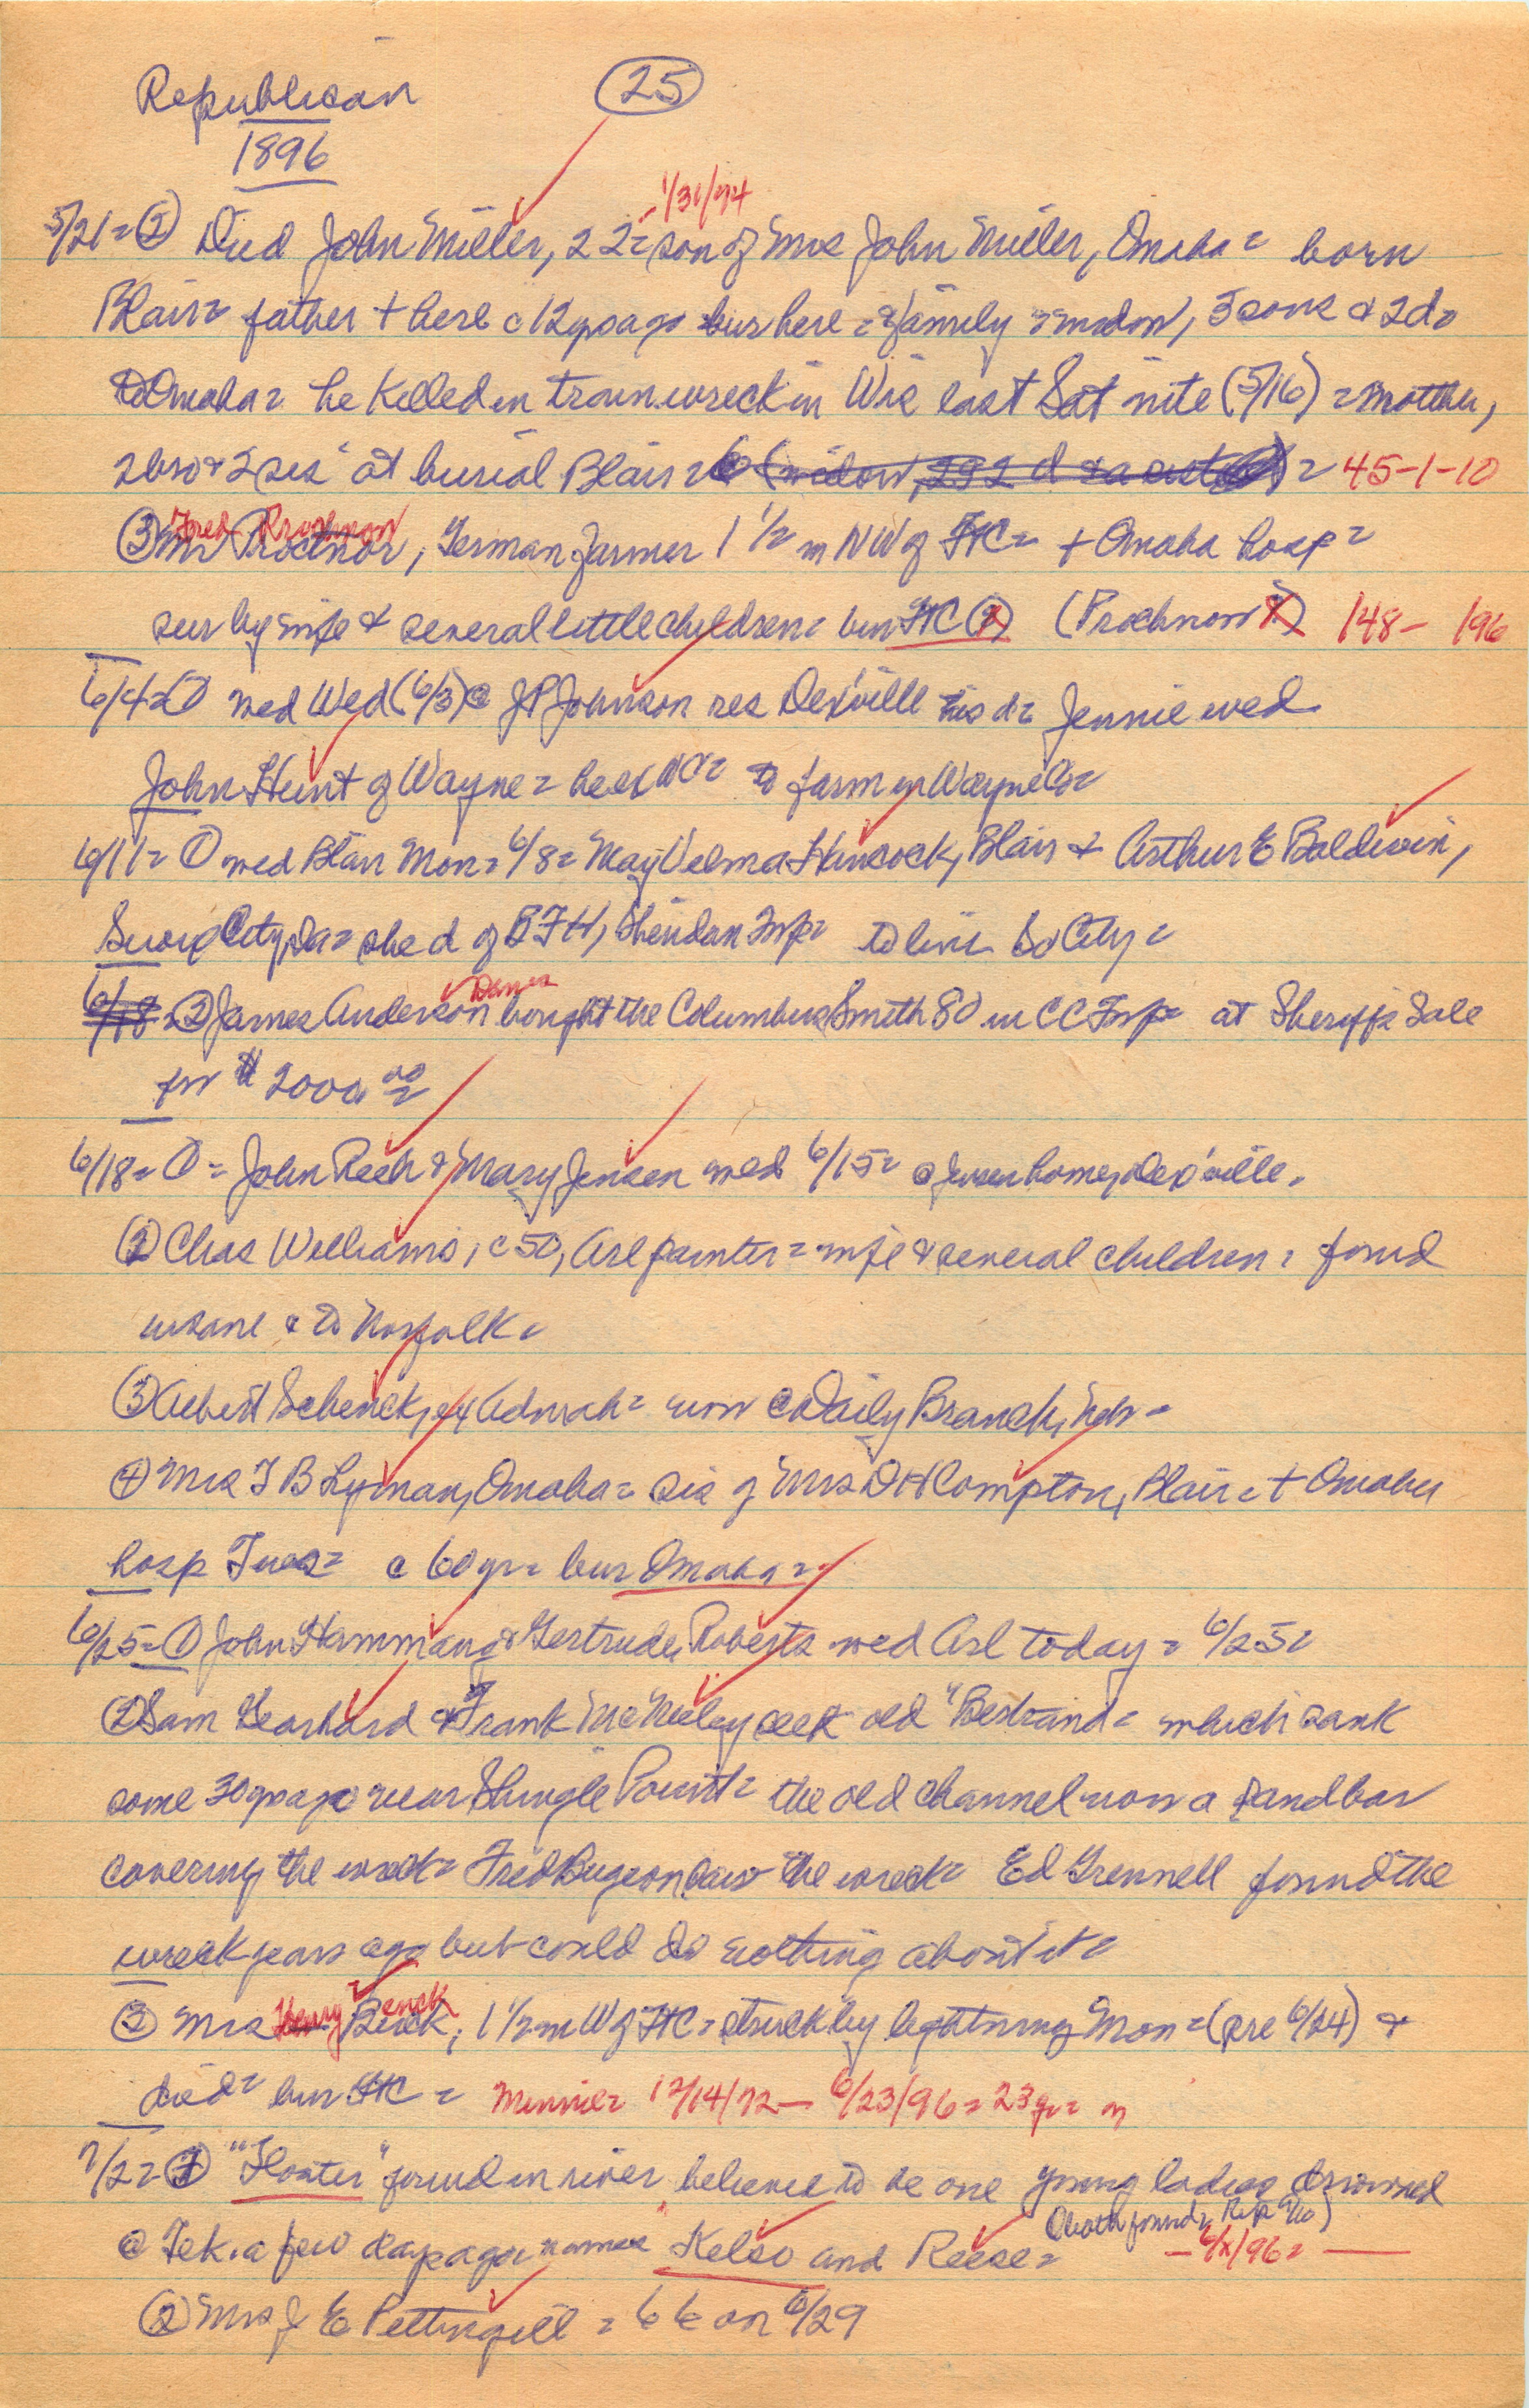 Republican (25)
1896
- 1/31/74
5/21 = (2) Died John Miller, 22 = son of Mrs John Miller, Omaha = born
Blair = father + here c 12 yrs ago bur here = family = widow, 3 sons & 2 d =
Omaha = he killed in train wreck in Wis last Sat nite (5/16) = mother,
2 bro & 2 sis at burial Blair = = 45-1-10
Fred Prochnow
(3) Mr Proctnor, German farmer 1 1/2 m NW of FtC = + Omaha hosp =
sur by wife & several little children = bur FtC (?) (Prochnow?) 148 - 196
6/4 = (1) wed Wed (6/3) @ JP Johnson res Dex'ville his d = Jennie wed
John Hunt of Wayne = he = to farm in Wayne Co =
6/11 = (1) wed Blair Mon = 6/8 = May Velma Hancock, Blair & Arthur E Baldwin,
Sioux City, Ia = she d of BFH, Sheridan Twp = to live So City =
6/18 = (2) James Anderson bought the Columbus Smith 80 in CC Twp = at Sheriff's Sale
for $2000.00 =
6/18 = (1) = John Reeh & Mary Jensen wed 6/15 = @ Jensen home, Dex'ville.
(2) Chas Williams, c 50, Arl painter = wife & several children = found
insane & to Norfolk =
(3) Albert Schenck, ex Admah = now @ Daily Branch, Neb =
(4) Mrs F B Lyman, Omaha = sis of Mrs DH Compton, Blair = + Omaha
hosp Tues = c 60 yr = bur Omaha =
6/25 = (1) John Hammang & Gertrude Roberts wed Arl today = 6/25 =
(2) Sam Gearhard & Frank McNeeley seek old "Bertrand = which sank
some 30 yrs ago near Shingle Point = the old channel now a sandbar
covering the wreck = Fred saw the wreck = Ed Grennell found the
wreck years ago but could do nothing about it =
Henry enck
(3) Mrs Buck, 1 1/2 m W of FtC = struck by lightning Mon = (pre 6/24) &
died = bur FtC = Minnie = 12/14/72 - 6/23/96 = 23 yr = m
7/2 = (1) "Floater" found in river believed to be one young ladies drowned
(Both found, Rep 9/10)
@ Tek. a few days ago = names Kelso and Reese = - 6/x/96 = -
(2) Mrs J E Pettingill = 66 on 6/29